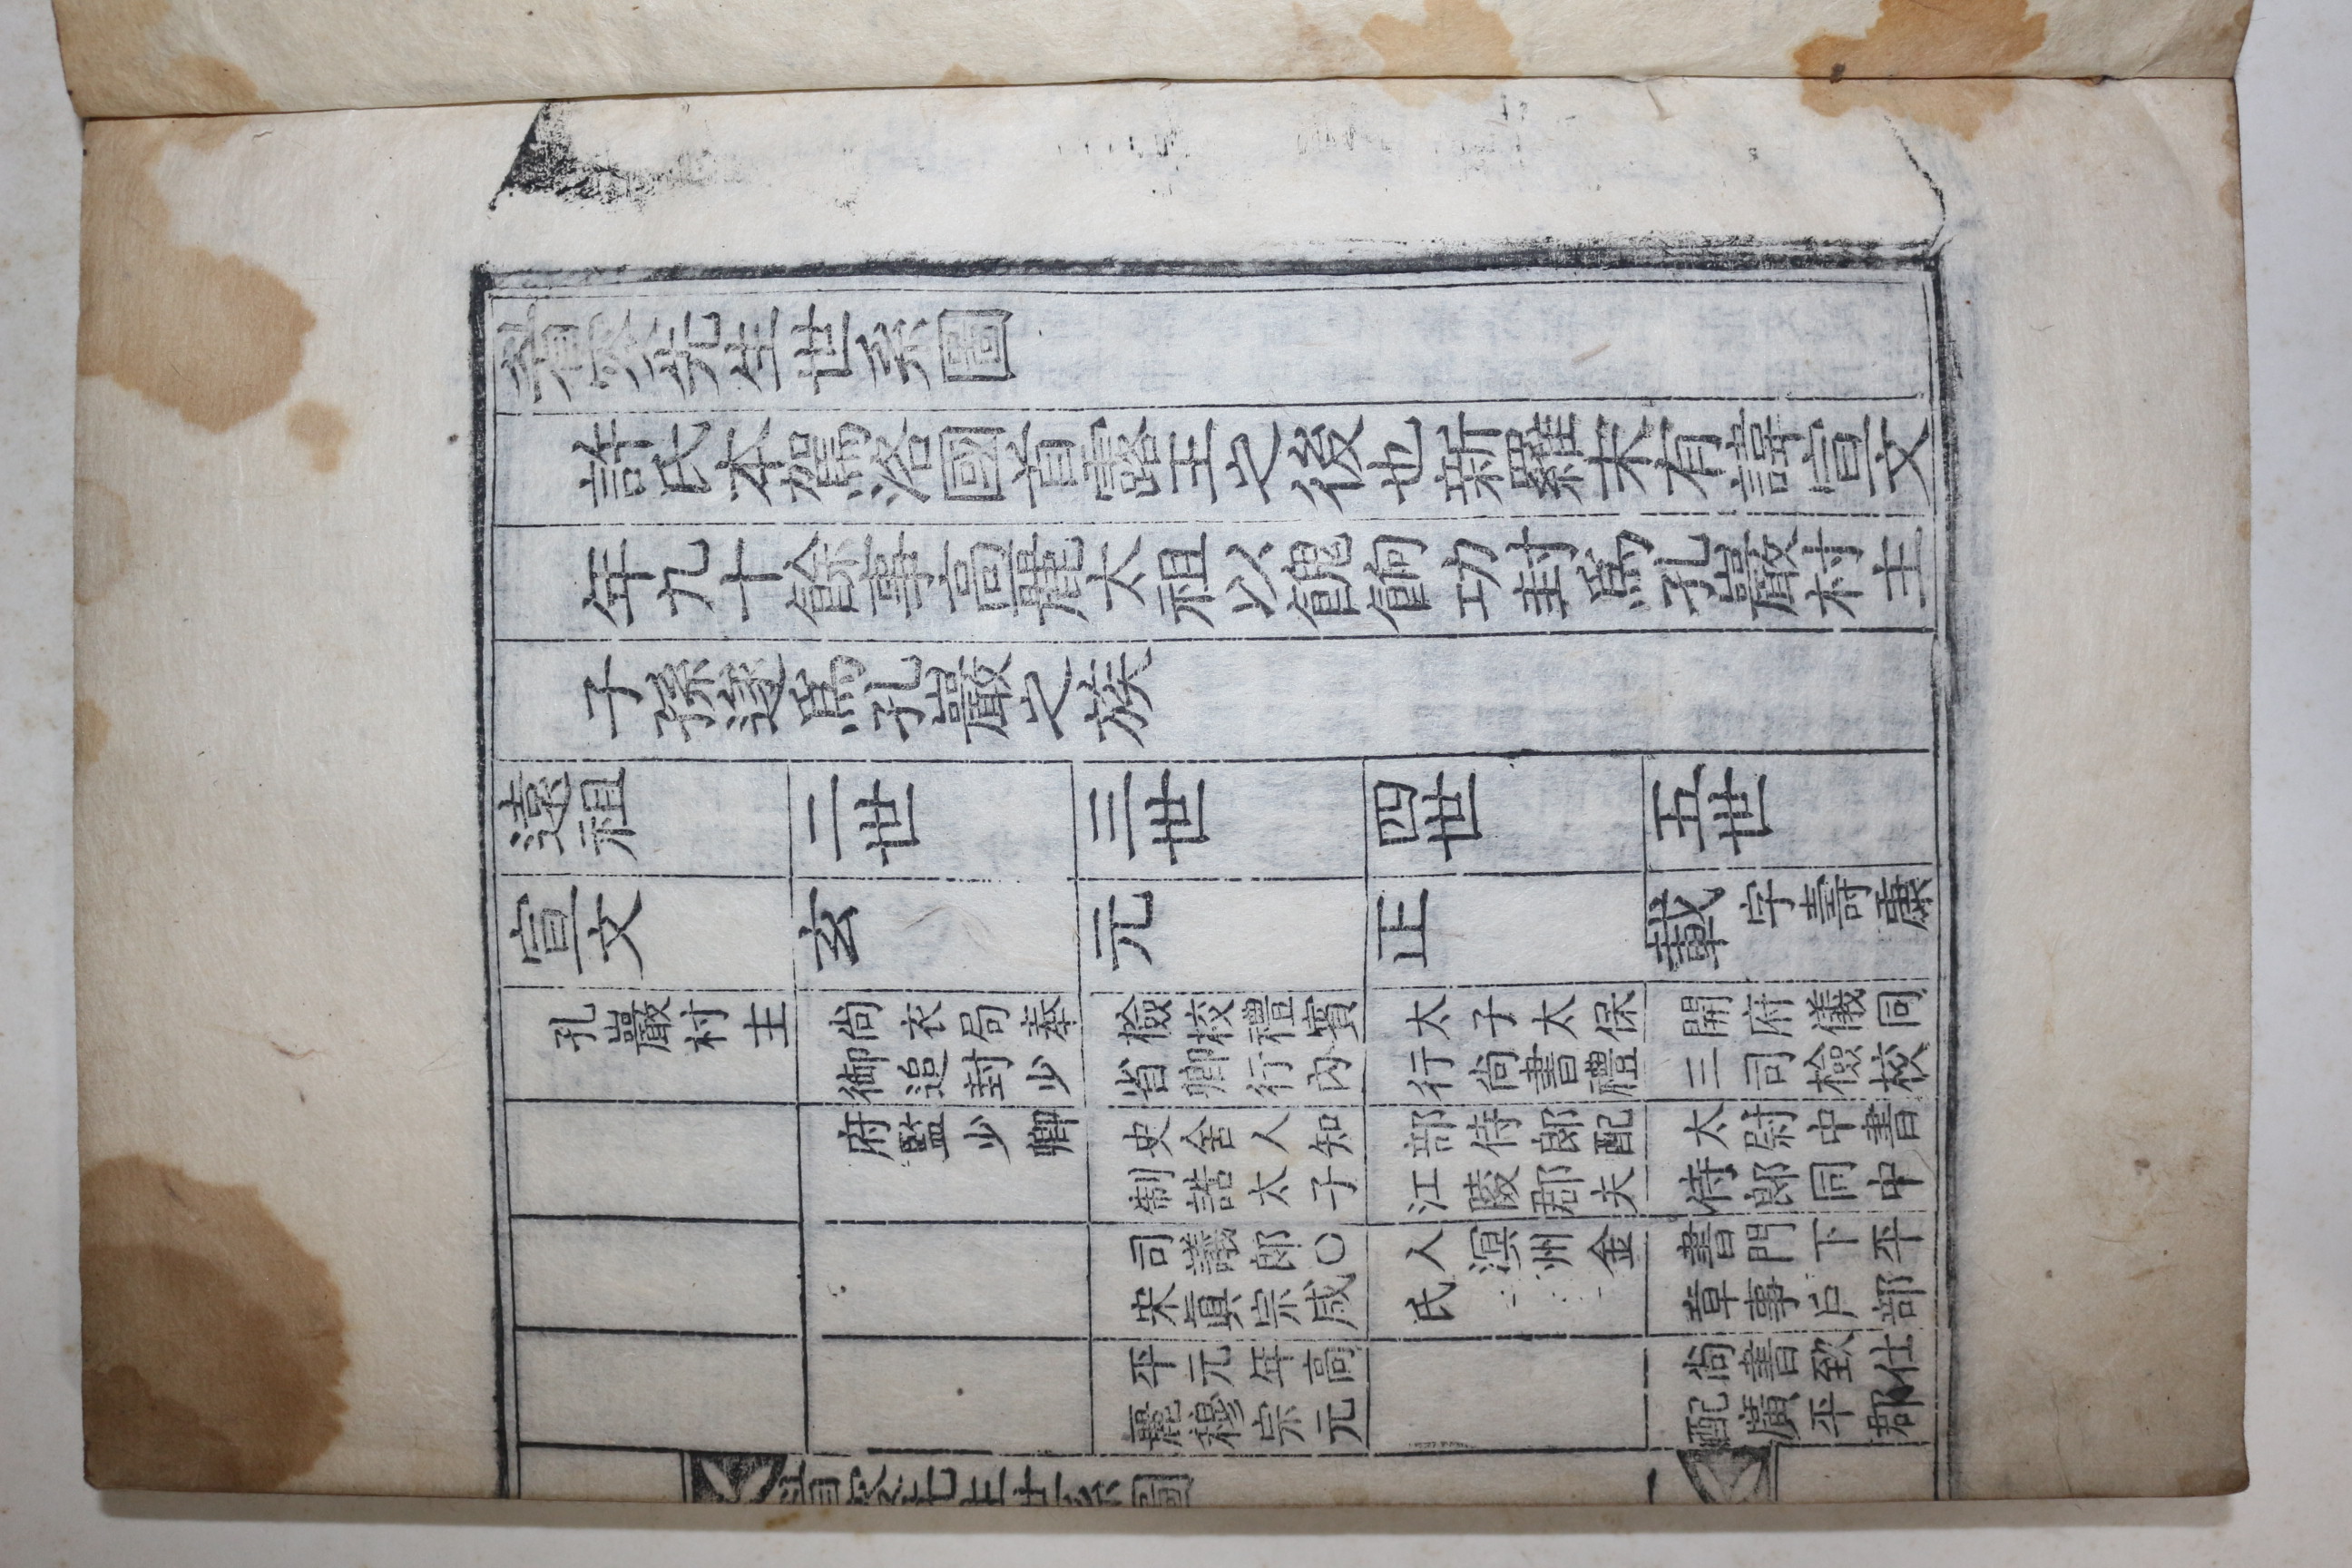 眉叟先生世系圖
許氏本駕洛國首露王之後也新羅末有諱宣文
年九十餘事高麗太祖以餽餉功封爲孔巖村主
子孫遂爲孔巖之族
遠祖
宣文
孔巖村主
二世
玄
尙衣局奉
御追封少
府監少卿
三世
元
檢校禮賓
省卿行內
史舍人知
制誥太子
司議郎○
宋眞宗咸
平元年高
麗穆宗元
四世
正
太子太保
行尙書禮
部侍郎配
江陵郡夫
人溟州金
氏
五世
載 字壽康
開府儀同
三司檢校
太尉中書
侍郎同中
書門下平
章事戶部
尙書致仕
配廣平郡